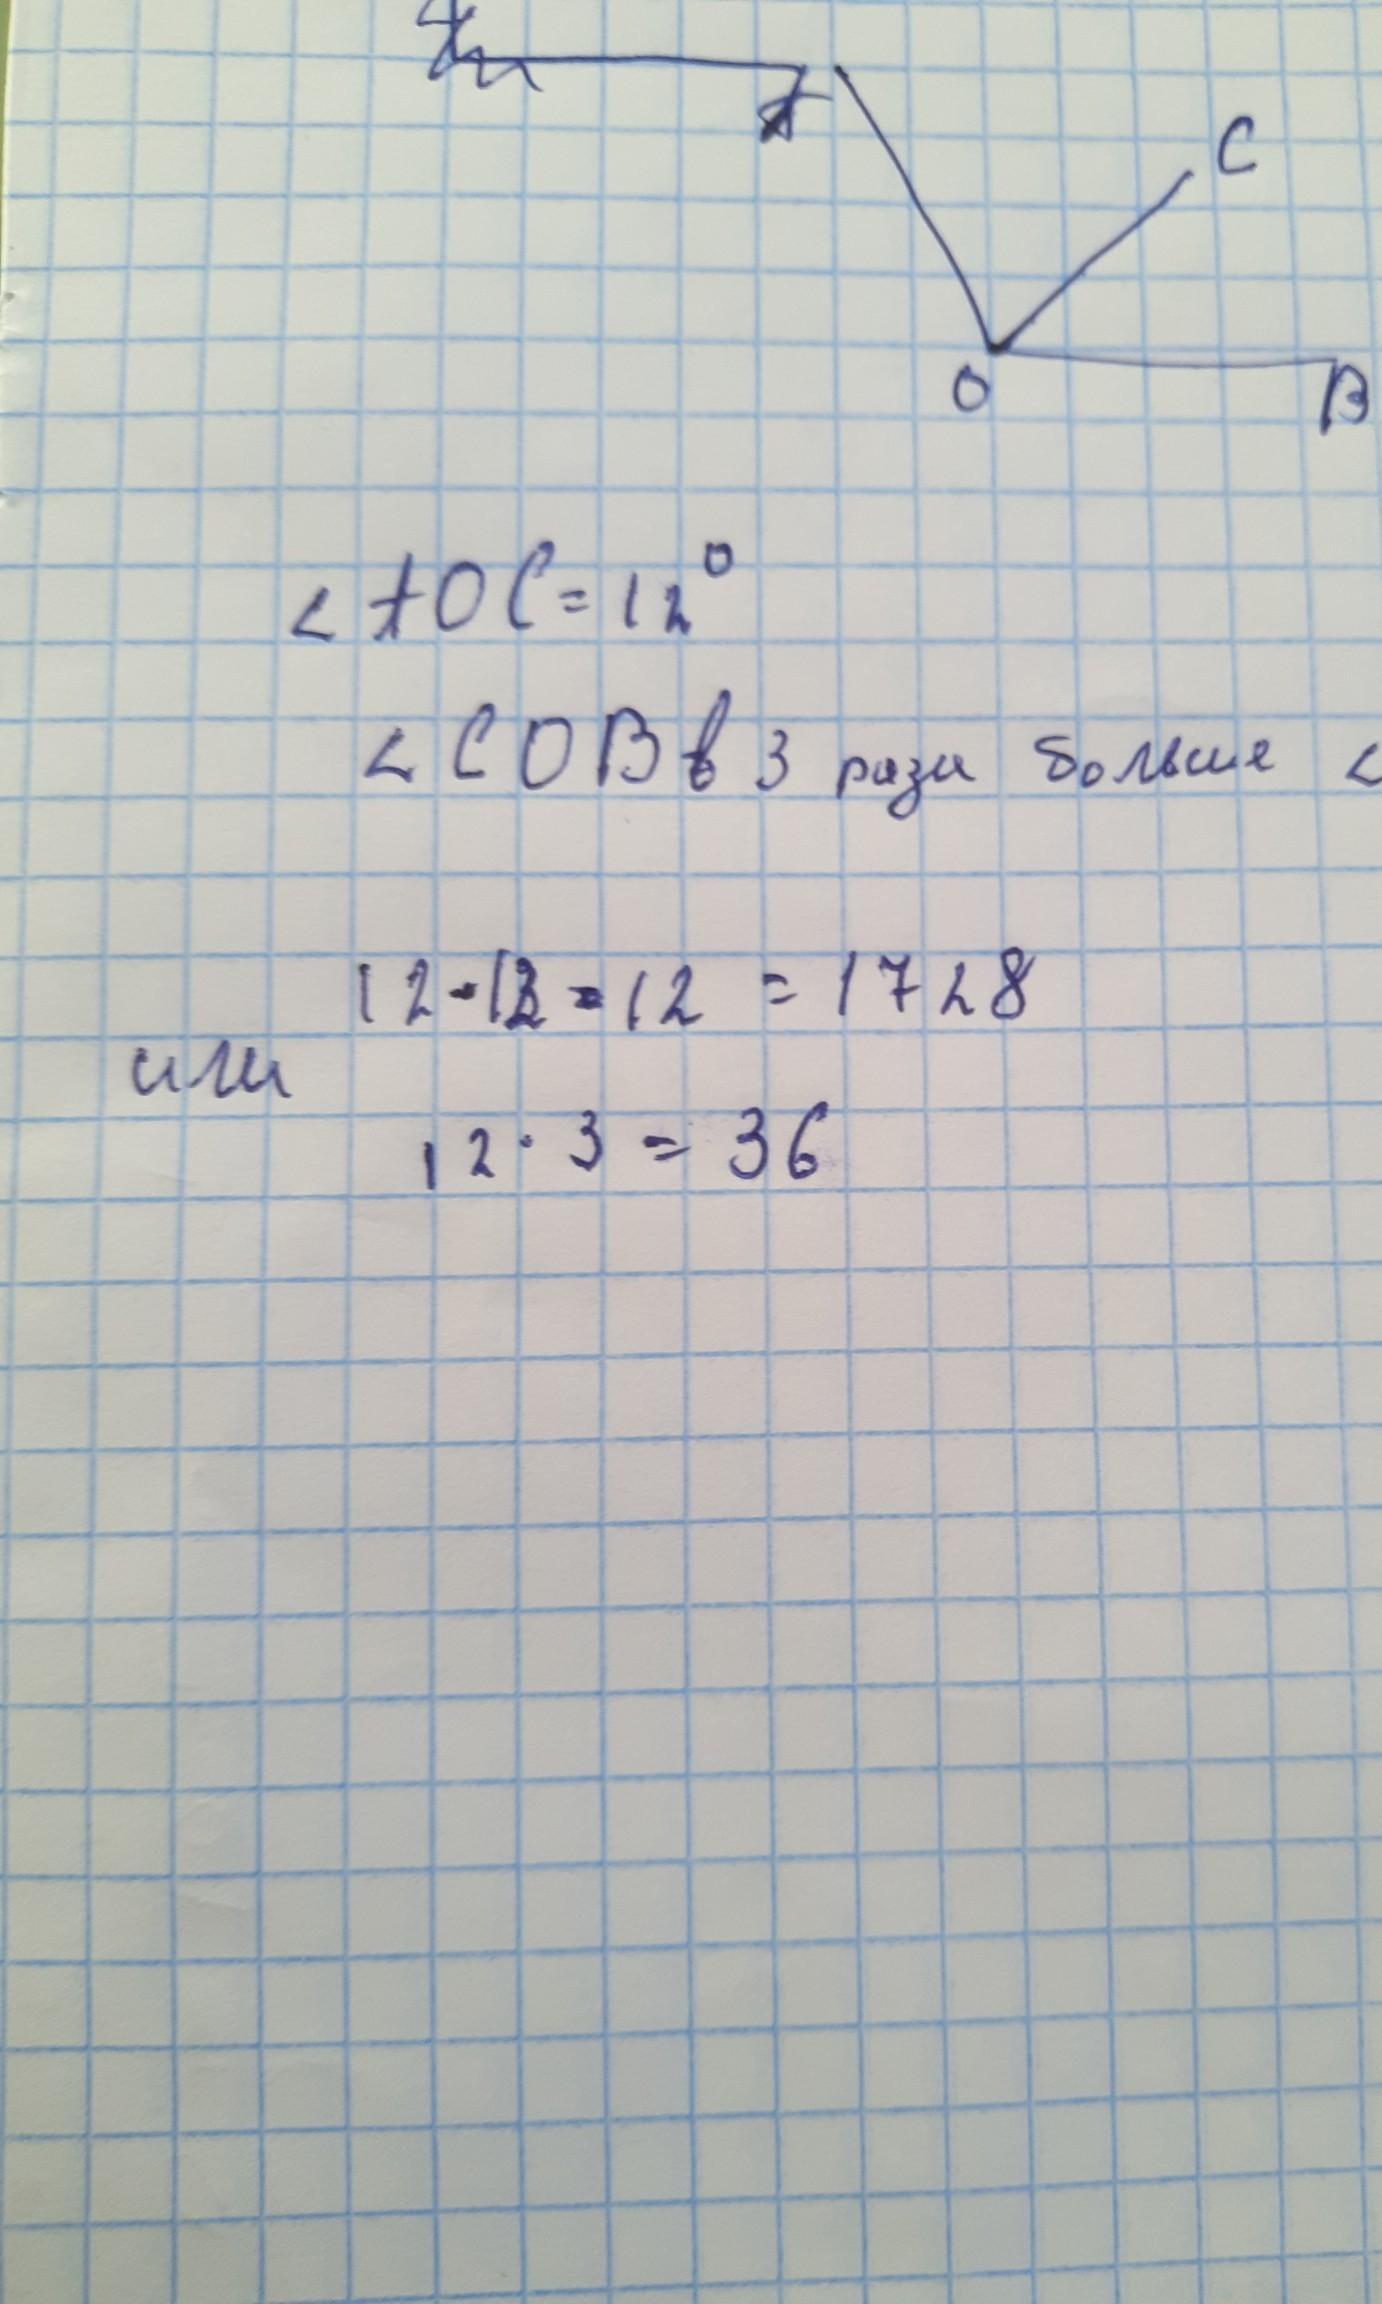 C
O
B
< AOC = 12°
< COB в 3 раза больше <
12 · 12 · 12 = 1728
или
12 · 3 = 36